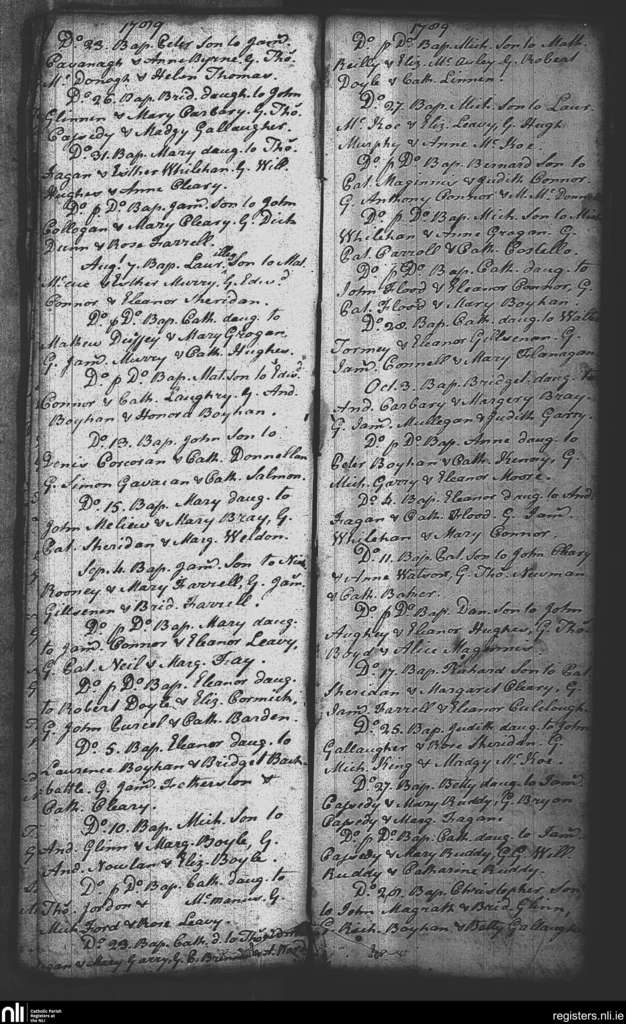 1789
Do. 23. Bap. Peter Son to Jamd.
Cavanagh & Anne Byrne G. Tho.
Mc. Donogh & Helen Thomas.
Do. 26. Bap. Brid. daugh. to John
Glennen & Mary Carbary. G. Tho.
Cassedy & Madgy Gallaugher.
Do. 31. Bap. Mary daug. to Tho.
Fagan & Esther Whilehan. G. Will.
Hughes & Anne Cleary.
Do p Do Bap. Jamd. Son to John
Collogan & Mary Cleary. G. Dick
Dunn & Rose Farrell.
Aug. 7. Bap. Laur. Son to Mat.
Mc. cue & Esther Murry. G. Edwd.
Connor & Eleanor Sheridan.
Do. p Do. Bap. Cath. daug. to
Mathew & Mary Grogan.
G. Jamd. Murry & Cath. Hughes.
Do p Do Bap. Mat. Son to Edwd.
Connor & Cath. Laughry. G. And.
Boyhan & Honora Boyhan.
Do. 13. Bap. John Son to
Denis Corcoran & Cath. Donnellan
G. Simon Gavacan & Cath. Salmon.
Do. 15. Bap. Mary daug. to
John Meliew & Mary Bray, G.
Pat. Sheridan & Marg. Weldon.
Sep. 4. Bap. Jamd. Son to
Rooney & Mary Farrell, G. Jamd.
Gillsenen & Brid. Farrell.
Do p Do Bap. Mary daug.
to Jamd. Connor & Eleanor Leavy,
G. Pat. Neil & Marg. Fay.
Do p Do. Bap. Eleanor daug.
to Robert Doyle & Eliz. Cormick,
G. John Purcel & Cath. Barden.
Do. 5. Bap. Eleanor daug. to
Laurence Boyhan & Bridget
G. Jamd. &
Cath. Cleary.
Do. 10. Bap. Mich. Son to
And. Glinn & Marg. Boyle, G.
And. Nowlan & Eliz. Boyle.
Do p Do. Bap. Cath. daug. to
Tho. Jordon & Mc. manus. G.
Mich Ford & Rose Leavy.
Do. 23. Bap. Cath. d. to Tho.
& Mary Garry, G.
1789
Do p Do. Bap. Mich. Son to Math.
Reilly & Eliz. Mc. Auley G. Robert
Doyle & Cath. Linnen
Do. 27. Bap. Mich. Son to Laur.
Mc. Koe & Eliz. Leavy, G. Hugh
Murphy & Anne Mc. Koe.
Do p Do Bap. Bernard Son to
Pat. Maginnis & Judith Connor.
G. Anthony Connor & M. Mc. Donnell
Do p Do Bap. Mich. Son to
Whilehan & Anne Gragan. G.
Pat. Carroll & Cath. Costello.
Do p Do Bap. Cath. daug. to
John Flood & Eleanor Connor, G.
Pat. Flood & Mary Boyhan.
Do. 28. Bap. Cath. daug. to
Tormey & Eleanor Gillsenon. G.
Jamd. Connell & Mary Flanagan
Oct. 3. Bap. Bridget daug. to
And. Carbary & Margery Bray.
G. Jamd. Mullegan & Judith Garry.
Do p Do Bap. Anne daug. to
Peter Boyhan & Cath. Kenny, G.
Mich. Garry & Eleanor Moore.
Do. 4. Bap. Eleanor daug. to And.
Fagan & Cath. Flood. G. Jamd.
Whilehan & Mary Connor.
Do. 11. Bap. Pat Son to John Cleary
& Anne Watson, G. Tho. Newman
& Cath. Baker.
Do p Do Bap. Dan. Son to John
Aughey & Eleanor Hughes, G. Tho.
Boyd & Alice Maginnis.
Do. 17. Bap. Richard Son to Pat.
Sheridan & Margaret Cleary, G.
Jamd. Farrell & Eleanor
Do. 25. Bap. Judith daug. to John
Gallaugher & Rose Sheridan. G.
Mich. King & Madgy Mc. Koe.
Do. 27. Bap. Betty daug. to Jamd.
Cassedy & Mary Ruddy, G. Bryan
Cassedy & Marg. Fagan.
Do. p Do Bap. Cath. daug. to Jamd.
Cassedy & Mary Ruddy, G. Will.
Ruddy & Catharine Ruddy.
Do. 28. Bap. Christopher Son
to John Magrath & Brid. Glinn,
G. Rich. Boyhan & Betty Gallaugher
nli
Catholic Parish
Registers at
the NLI
registers.nli.ie